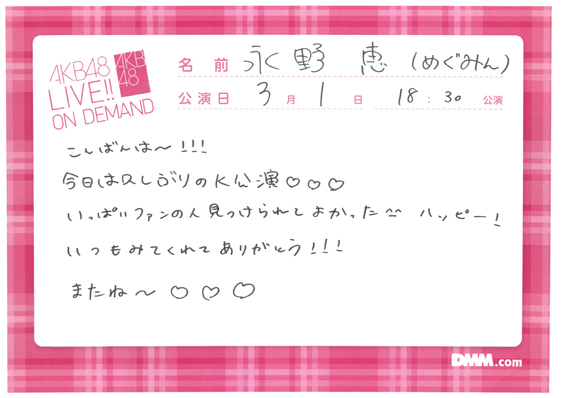 AKB48
LIVE!!
ON DEMAND
AKB
48
名前 永野 恵 (めぐみん)
公演日 3月 1日 18:30 公演
こんばんは〜!!!
今日は久しぶりのK公演♡♡♡
いっぱいファンの人見つけられてよかった ハッピー!
いつもみてくれてありがとう!!!
またね〜♡♡♡
DMM.com